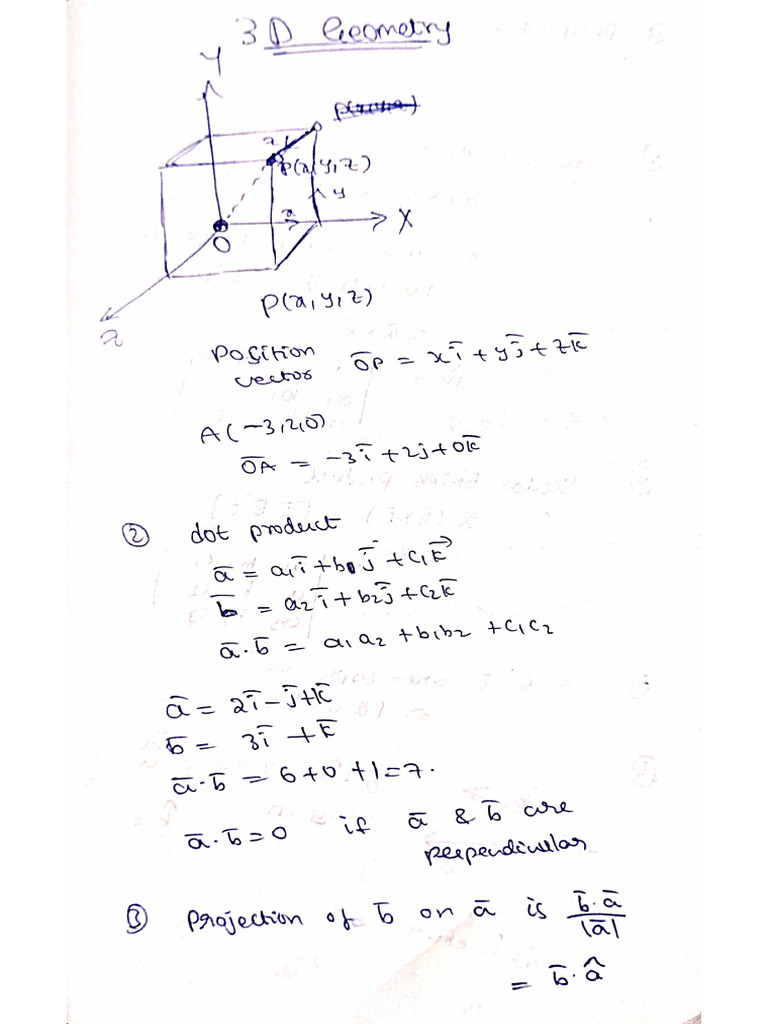 3D Geometry
Y
z
P(x,y,z)
y
x
X
O
z
P(x,y,z)
Position
vector O̅P̅ = xi̅ + yj̅ + zk̅
A(-3,2,0)
O̅A̅ = -3i̅ + 2j + 0k̅
② dot product
a̅ = a₁i̅ + b₁j̅ + c₁k⃗
b̅ = a₂i̅ + b₂j̅ + c₂k̅
a̅·b̅ = a₁a₂ + b₁b₂ + c₁c₂
a̅ = 2i̅ - j̅ + k̅
b̅ = 3i̅ + k̅
a̅·b̅ = 6+0+1=7.
a̅·b̅=0 if a̅ & b̅ are
perpendicular
③ Projection of b̅ on a̅ is b̅·a̅/|a̅|
= b̅·â